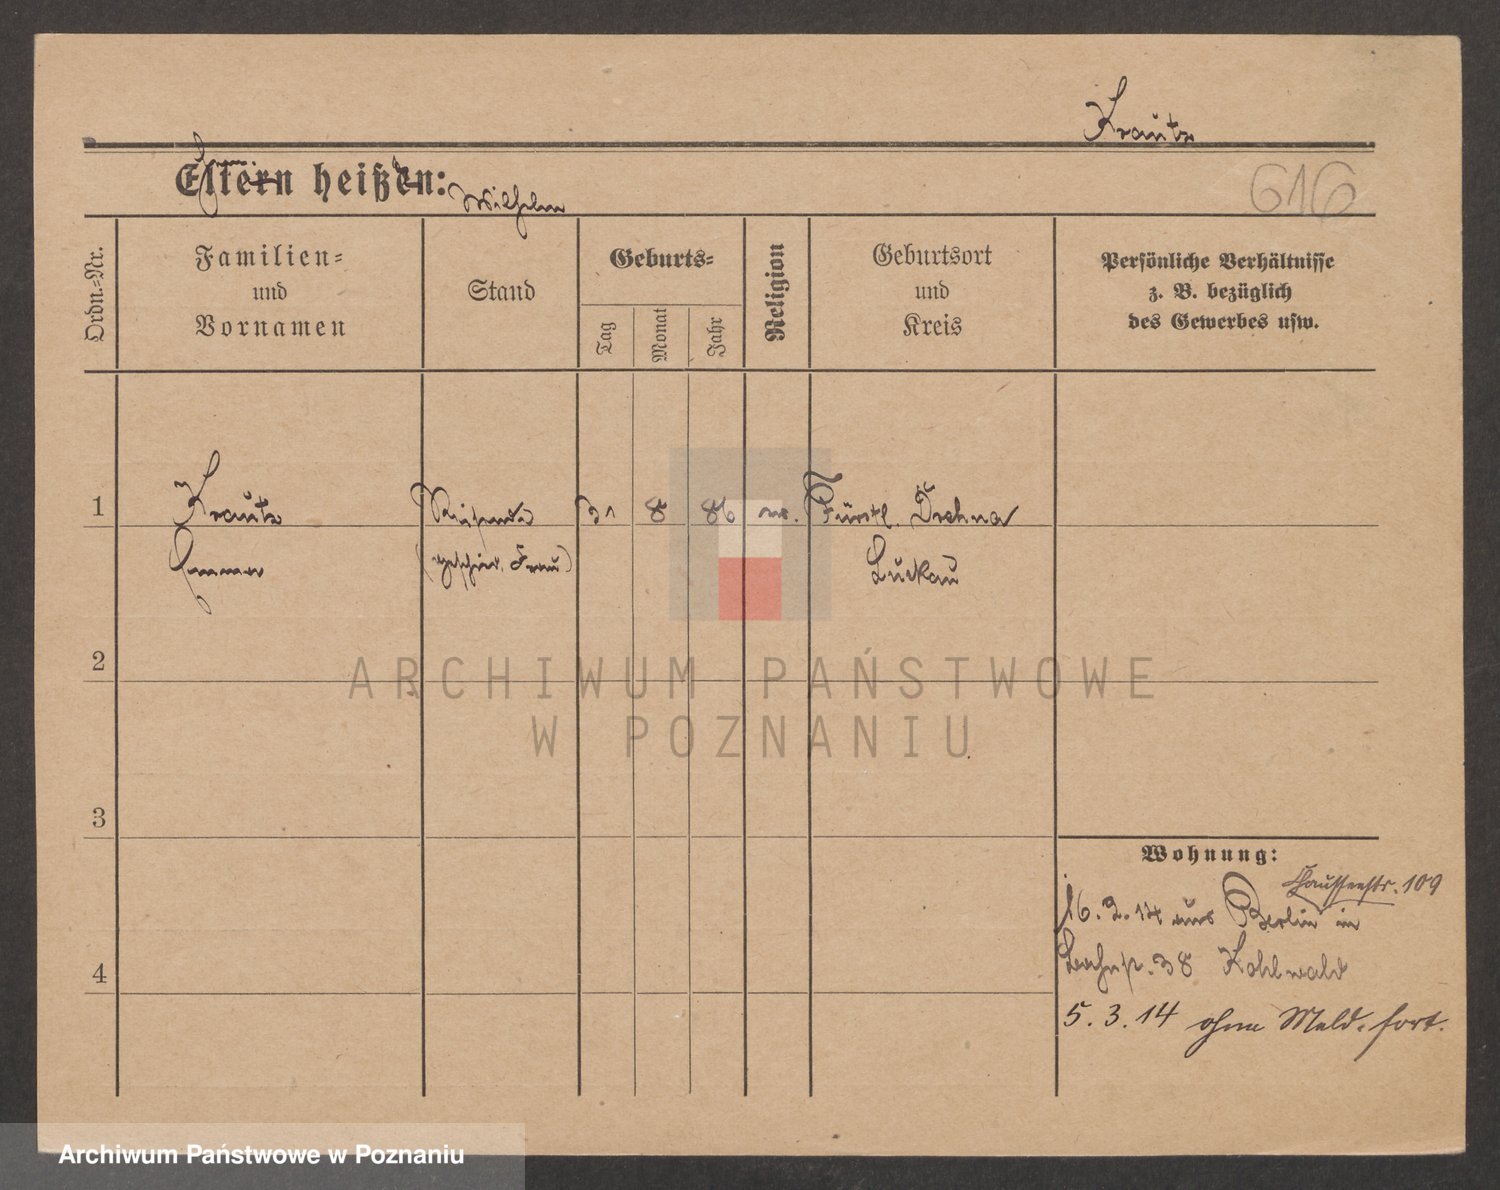 Krautz
Eltern heißen:
Wilhelm
616
Ordn.-Nr.
Familien-
und
Vornamen
Stand
Geburts-
Tag
Monat
Jahr
Religion
Geburtsort
und
Kreis
Persönliche Verhältnisse
z. B. bezüglich
des Gewerbes usw.
1
Krautz
31
8
86
ev.
Fürstl. Drehna
Emma
(geschied. Frau)
Luckau
2
ARCHIWUM PAŃSTWOWE
W POZNANIU
3
Wohnung:
109
16. 2. 14 aus Berlin in
38 Kohlwald
4
5. 3. 14 ohne Meld. fort.
Archiwum Państwowe w Poznaniu